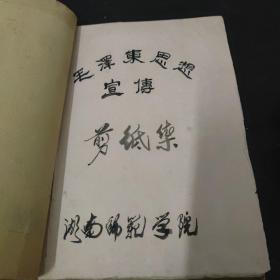 毛澤東思想
宣傳
剪纸集
湖南师范学院